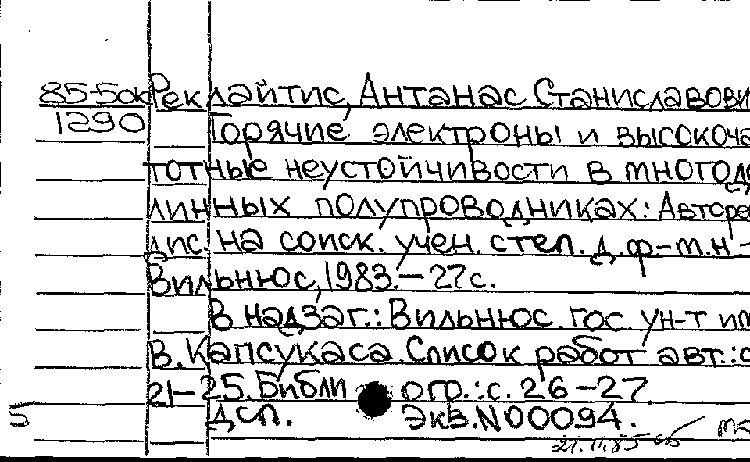 85-5ок Реклайтис, Антанас Станиславови
1290 Горячие электроны и высокоча
тотные неустойчивости в многодо
линных полупроводниках: Авторе
дис. на соиск. учен. степ. д. ф-м.н -
Вильнюс, 1983.-27с.
В надзаг.: Вильнюс. гос. ун-т им
В. Капсукаса. Список работ авт.: с
21-25. Библиогр.: с. 26-27.
5 ДСП. Экз. N00094.